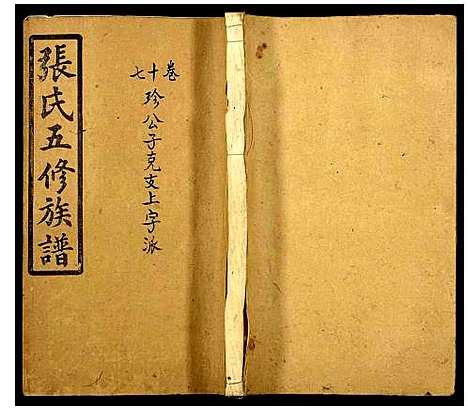 張氏五修族譜
卷十七
珍公子克支上字派